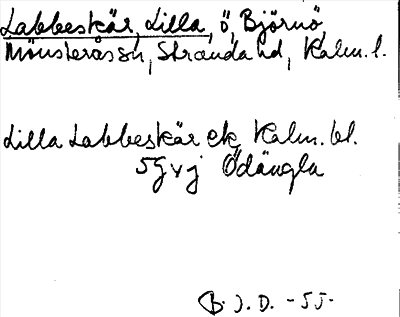 Labbeskär, Lilla, ö, Björnö,
Mönsterås sn, Stranda hd, Kalm. l.
Lilla Labbeskär ek, Kalm. bl.
5G v j Ödängla
B. J. D. - 55-